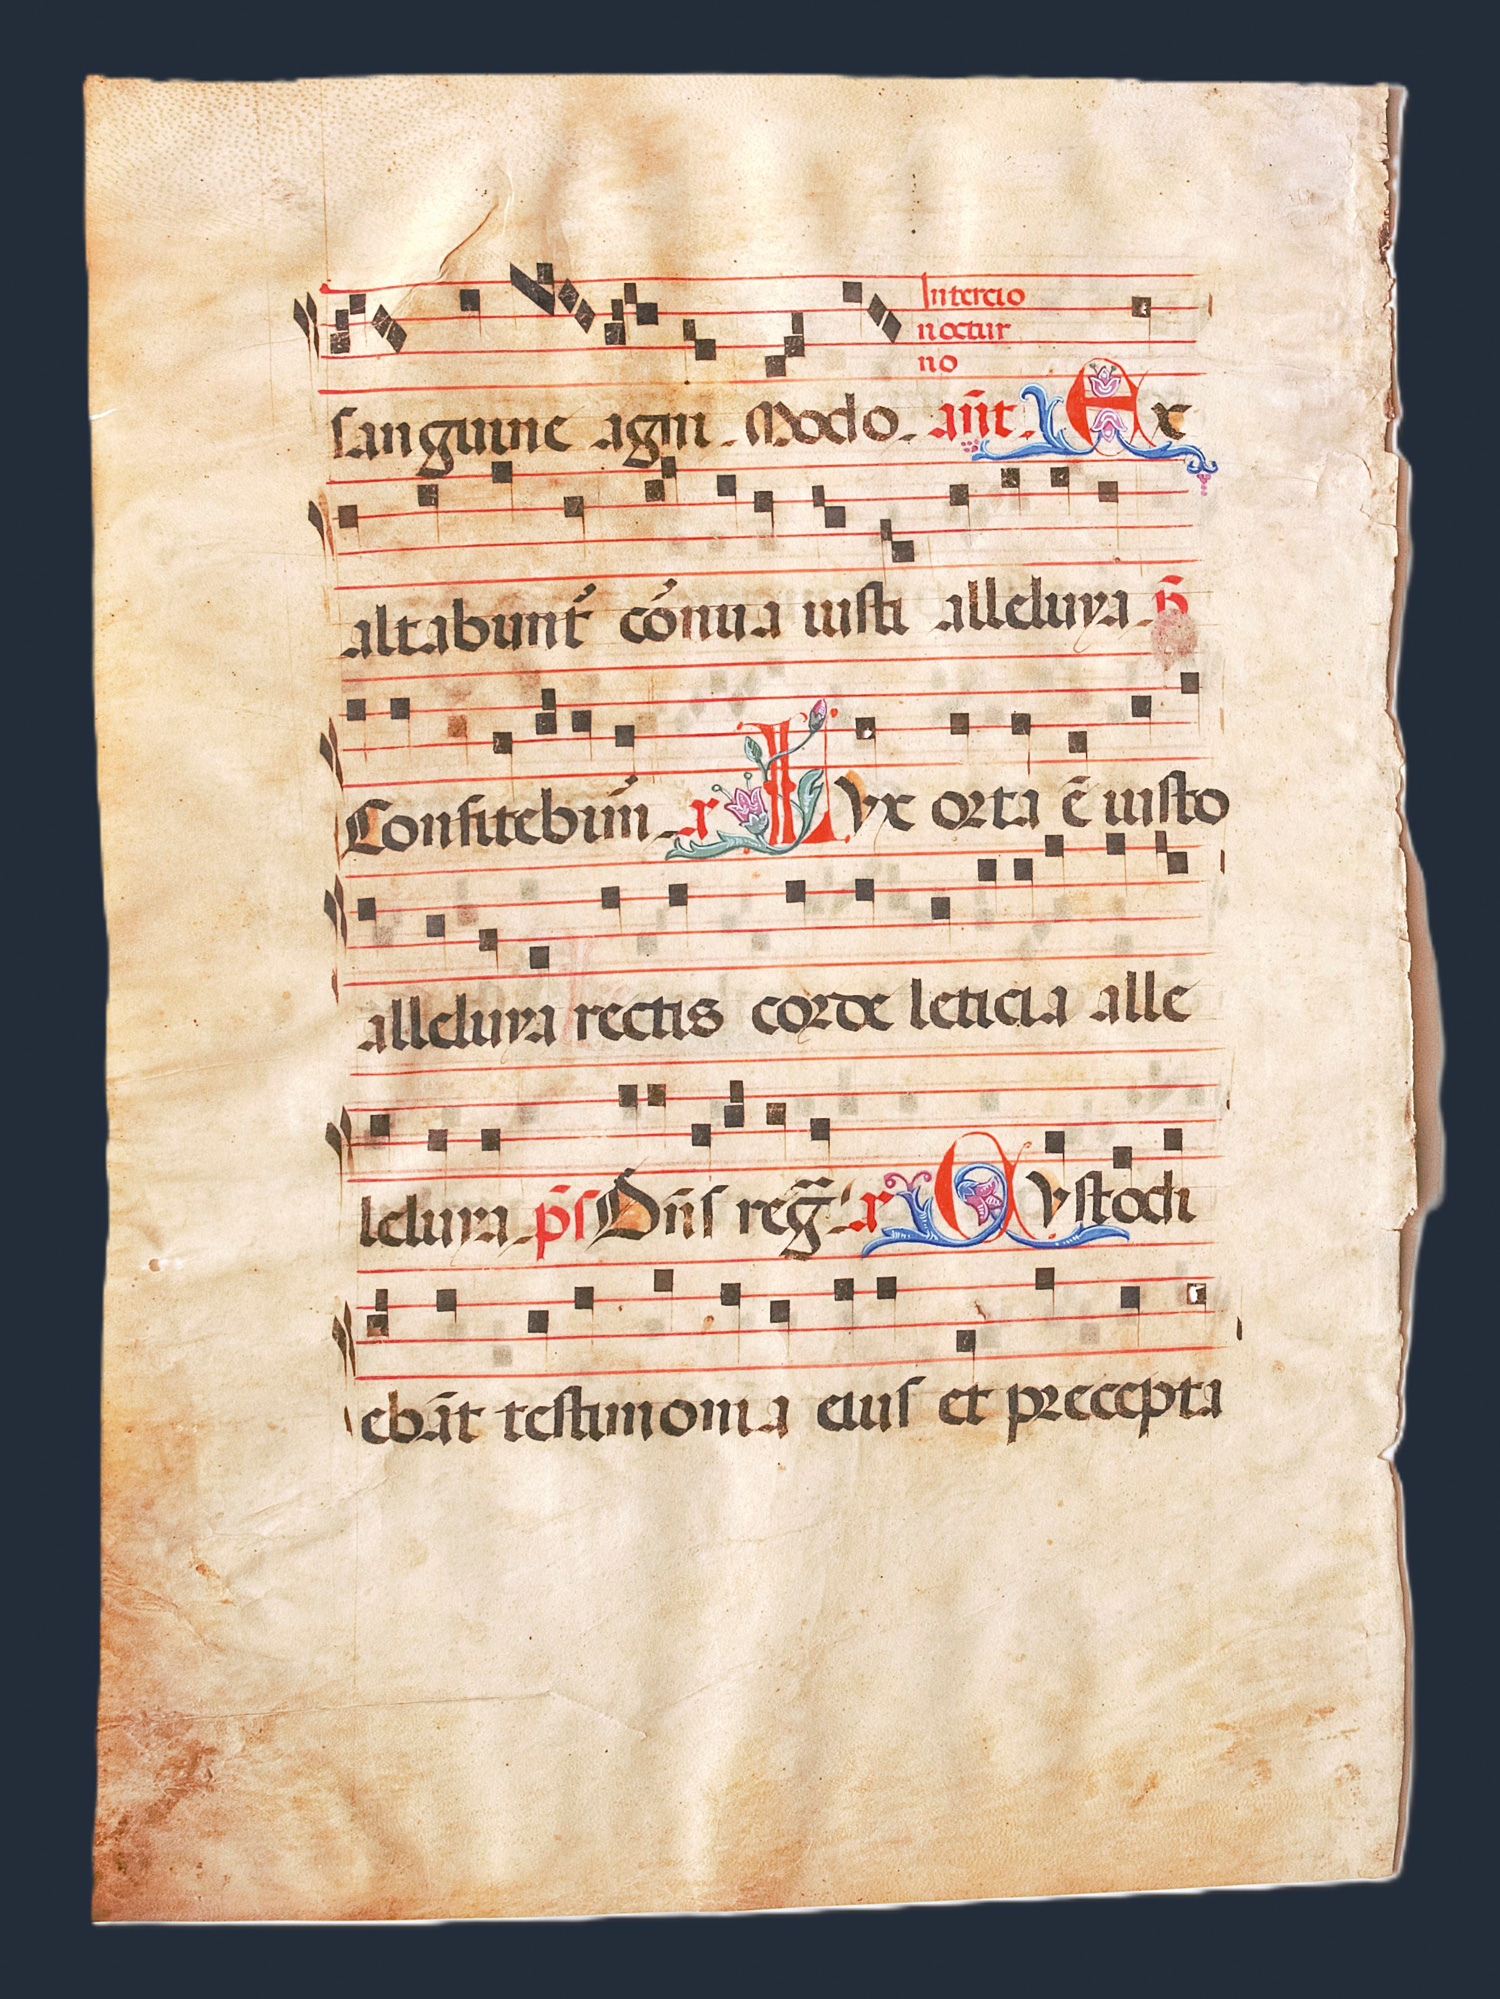 Intercio
noctur
no
sanguine agni. Modo. añt. Ex
altabunt᷑ córnua iusti alleluya. p̄
Confitebim̃. r Lvx orta ē iusto
alleluya rectis corde leticia alle
leluya. p̄s Dñs reg̃. r Cvstodi
ebāt testimonia eius et precepta